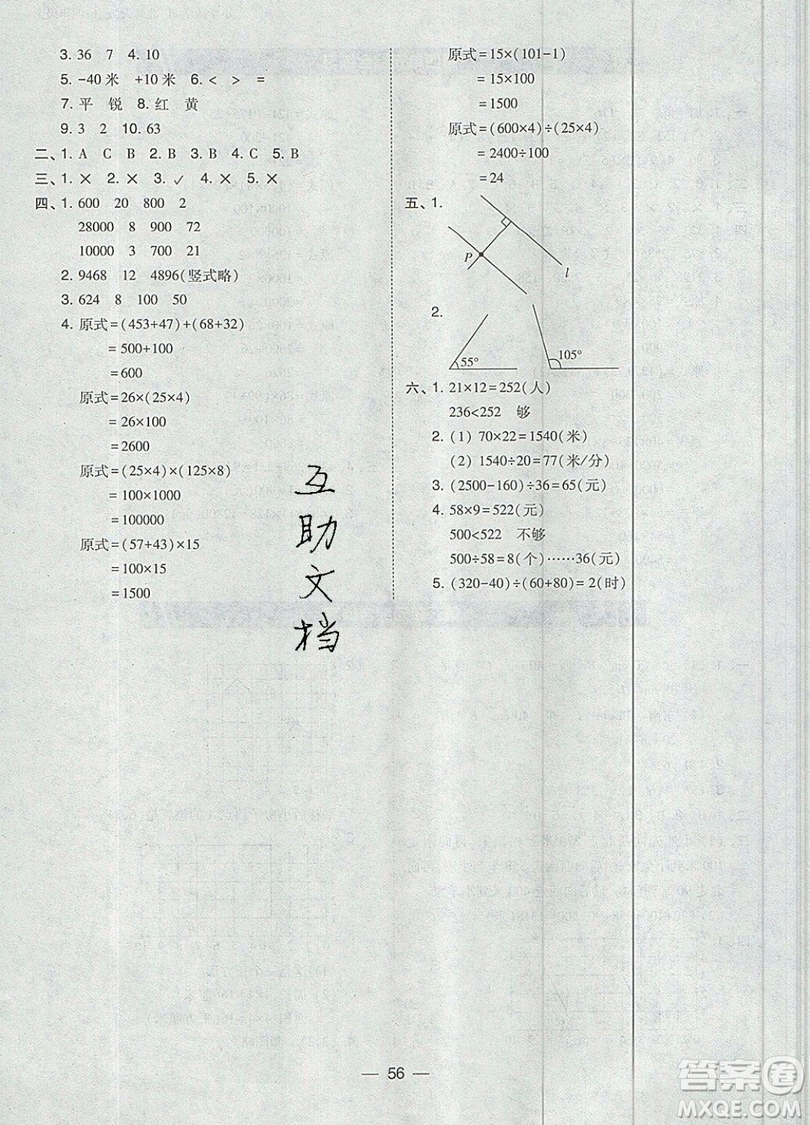 3. 36 7 4. 10
5. -40 米 +10 米 6. < > =
7. 平 锐 8. 红 黄
9. 3 2 10. 63
二、1. A C B 2. B 3. B 4. C 5. B
三、1. × 2. × 3. ✓ 4. × 5. ×
四、1. 600 20 800 2
28000 8 900 72
10000 3 700 21
2. 9468 12 4896(竖式略)
3. 624 8 100 50
4. 原式=(453+47)+(68+32)
=500+100
=600
原式=26×(25×4)
=26×100
=2600
原式=(25×4)×(125×8)
=100×1000
=100000
原式=(57+43)×15
=100×15
=1500
互助文档
原式=15×(101-1)
=15×100
=1500
原式=(600×4)÷(25×4)
=2400÷100
=24
五、1.
P
l
2.
55°
105°
六、1. 21×12=252(人)
236<252 够
2. (1) 70×22=1540(米)
(2) 1540÷20=77(米/分)
3. (2500-160)÷36=65(元)
4. 58×9=522(元)
500<522 不够
500÷58=8(个)……36(元)
5. (320-40)÷(60+80)=2(时)
— 56 —
答案圈
MXQE.COM